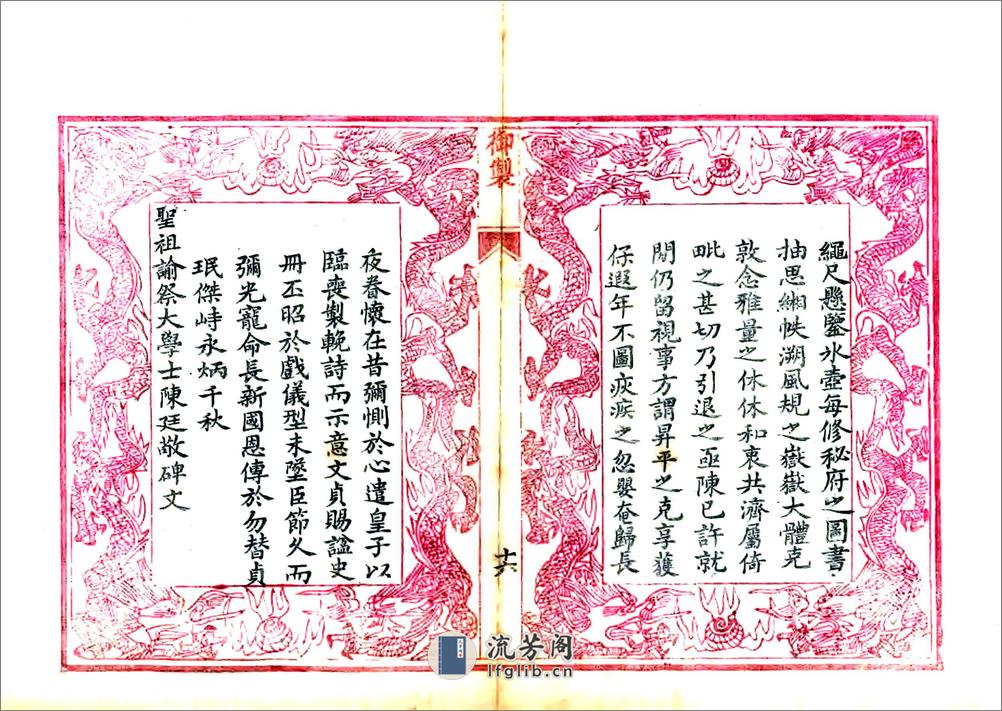 繩尺懸鑒氷壺每修秘府之圖書
抽思緗帙溯風規之嶽嶽大體克
敦念雅量之休休和衷共濟屬倚
毗之甚切乃引退之亟陳已許就
閒仍留視事方謂昇平之克享獲
仔遐年不圖疢疾之忽嬰奄歸長
御製
十六
夜眷懷在昔彌惻於心遣皇子以
臨喪製輓詩而示意文貞賜諡史
冊丕昭於戲儀型未墜臣節久而
彌光寵命長新國恩傳於勿替貞
珉傑峙永炳千秋
聖祖諭祭大學士陳廷敬碑文
流芳阁
lfglib.cn